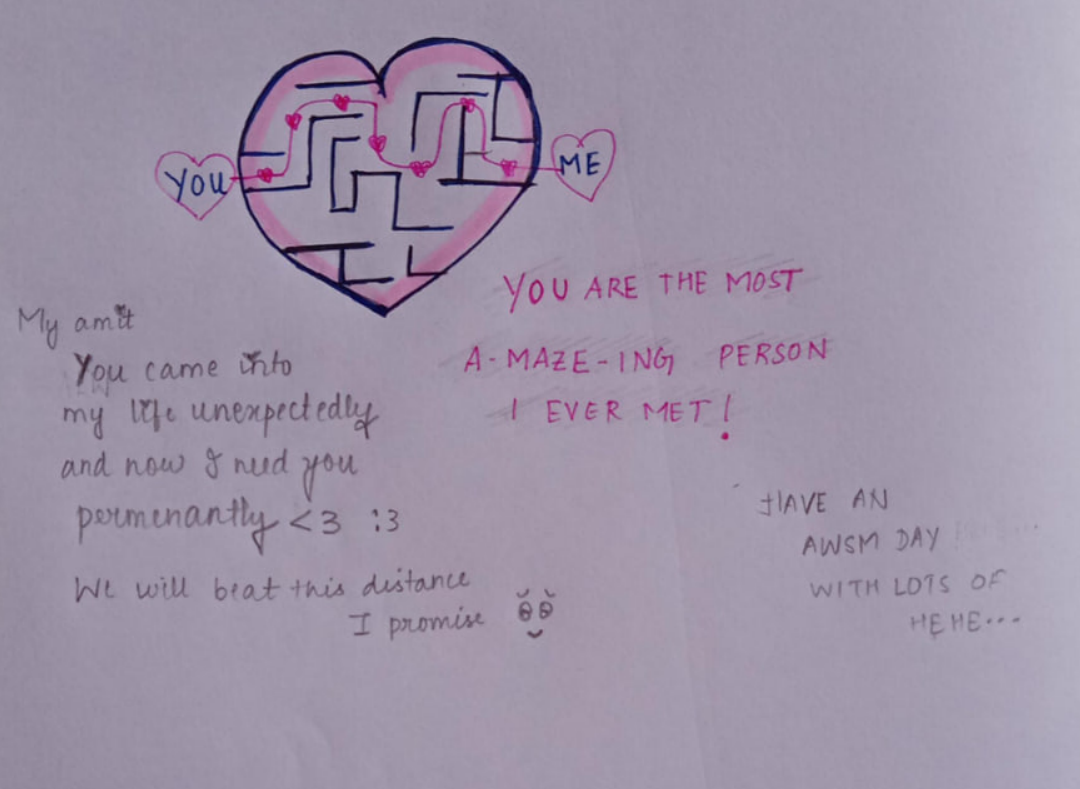 YOU
ME
YOU ARE THE MOST
A-MAZE-ING PERSON
I EVER MET!
My amit
You came into
my life unexpectedly
and now I need you
permenantly <3 :3
We will beat this distance
I promise
HAVE AN
AWSM DAY
WITH LOTS OF
HEHE...